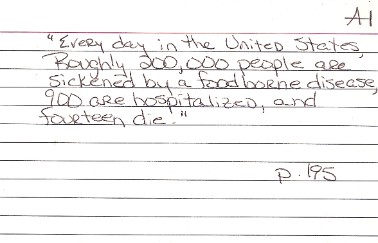 A1
"Every day in the United States,
Roughly 200,000 people are
sickened by a foodborne disease,
900 are hospitalized, and
fourteen die."
p. 195